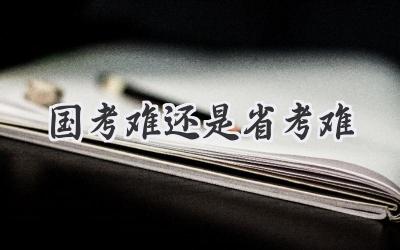 国考难还是省考难